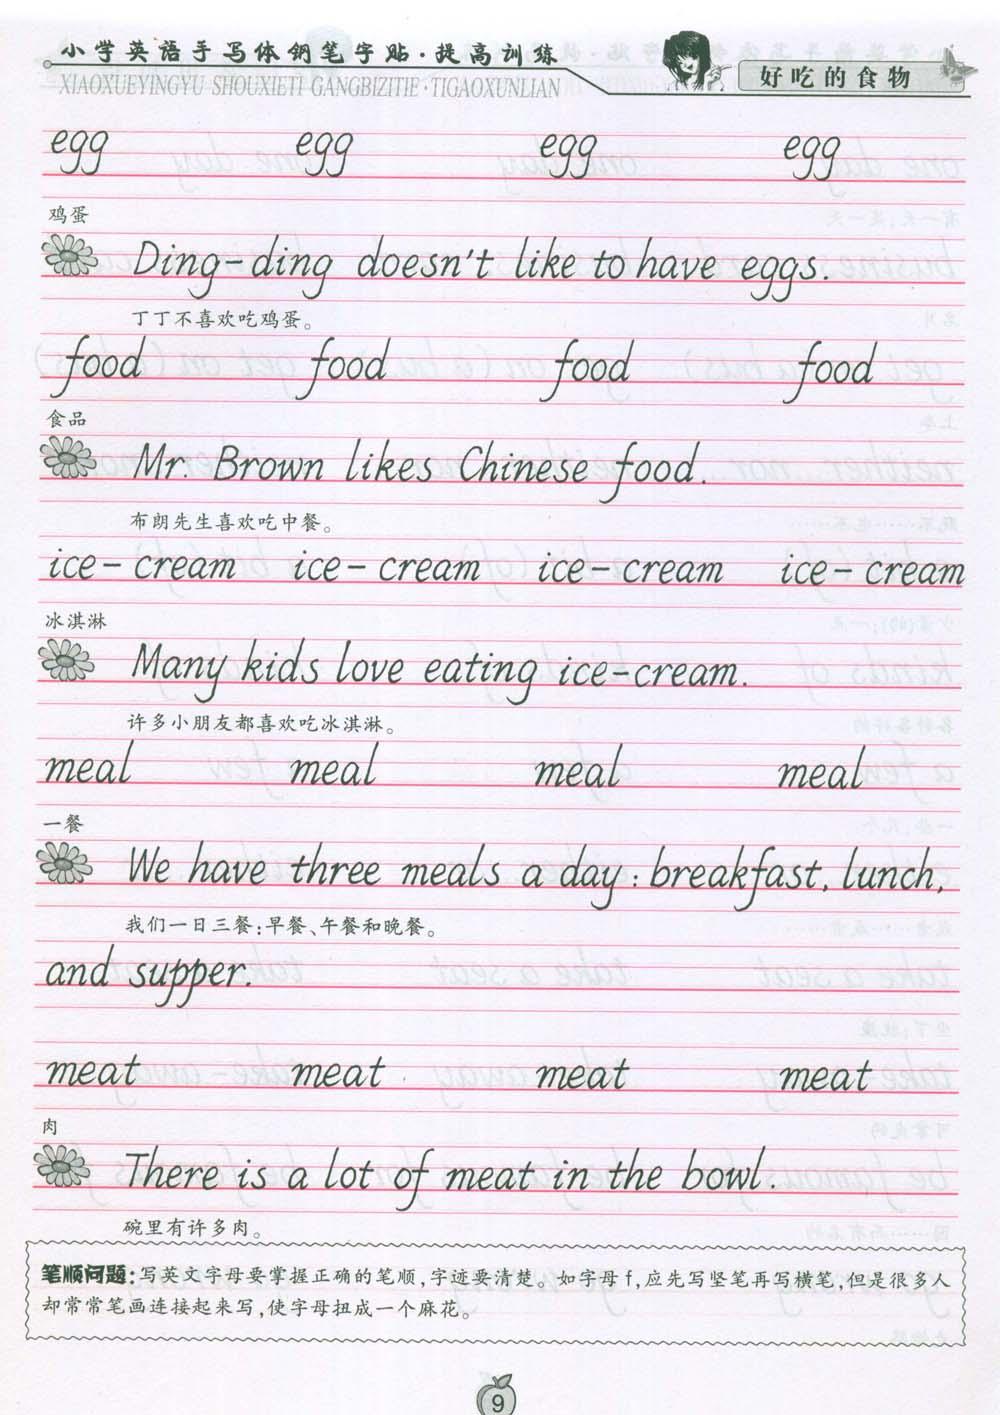 小学英语手写体钢笔字贴·提高训练
XIAOXUEYINGYU SHOUXIETI GANGBIZITIE·TIGAOXUNLIAN
好吃的食物
egg egg egg egg
鸡蛋
Ding-ding doesn't like to have eggs.
丁丁不喜欢吃鸡蛋。
food food food food
食品
Mr. Brown likes Chinese food.
布朗先生喜欢吃中餐。
ice-cream ice-cream ice-cream ice-cream
冰淇淋
Many kids love eating ice-cream.
许多小朋友都喜欢吃冰淇淋。
meal meal meal meal
一餐
We have three meals a day: breakfast, lunch,
我们一日三餐:早餐、午餐和晚餐。
and supper.
meat meat meat meat
肉
There is a lot of meat in the bowl.
碗里有许多肉。
笔顺问题:写英文字母要掌握正确的笔顺,字迹要清楚。如字母f,应先写竖笔再写横笔,但是很多人
却常常笔画连接起来写,使字母扭成一个麻花。
9